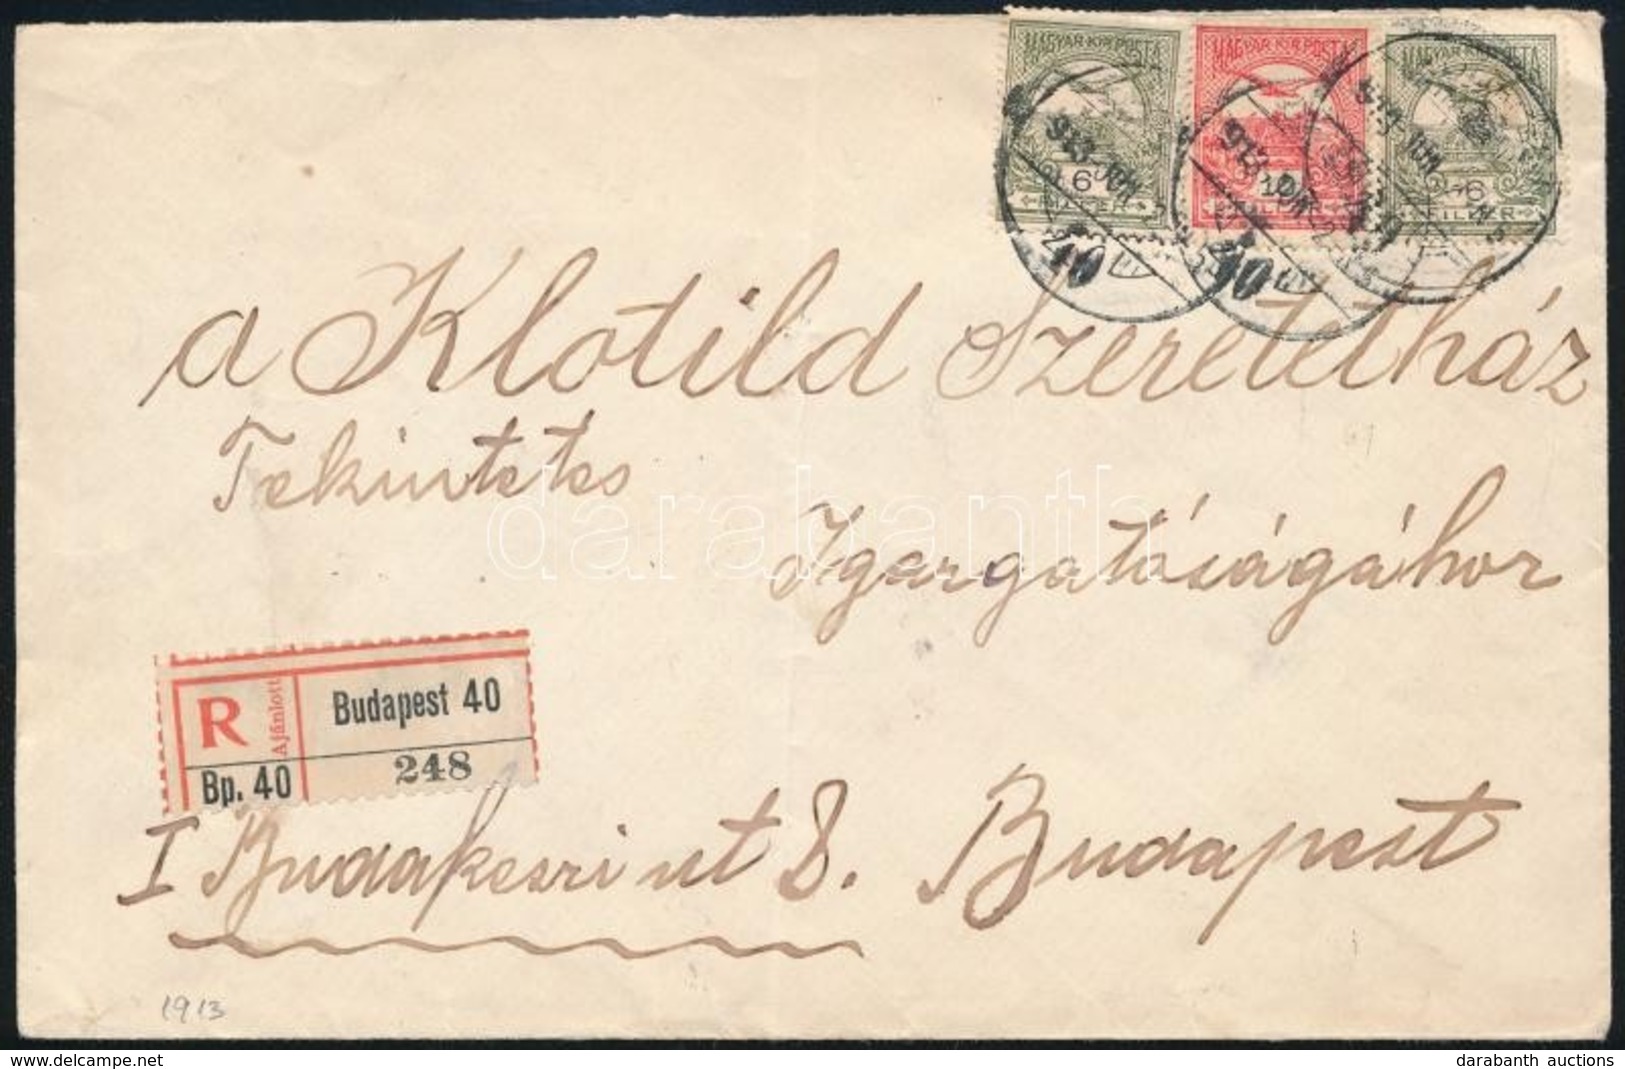 MAGYAR KIR. POSTA MAGYAR KIR. POSTA MAGYAR KIR. POSTA
6 10 6
FILLÉR FILLÉR FILLÉR
913 JUN 913 JUN 913 JUN
40 40
a Klotild Szeretetház
Tekintetes
Igazgatóságához
darabanth
R Ajánlott Budapest 40
Bp. 40 248
I Budakeszi ut 8. Budapest
1913
delcampe.net
darabanth auctions